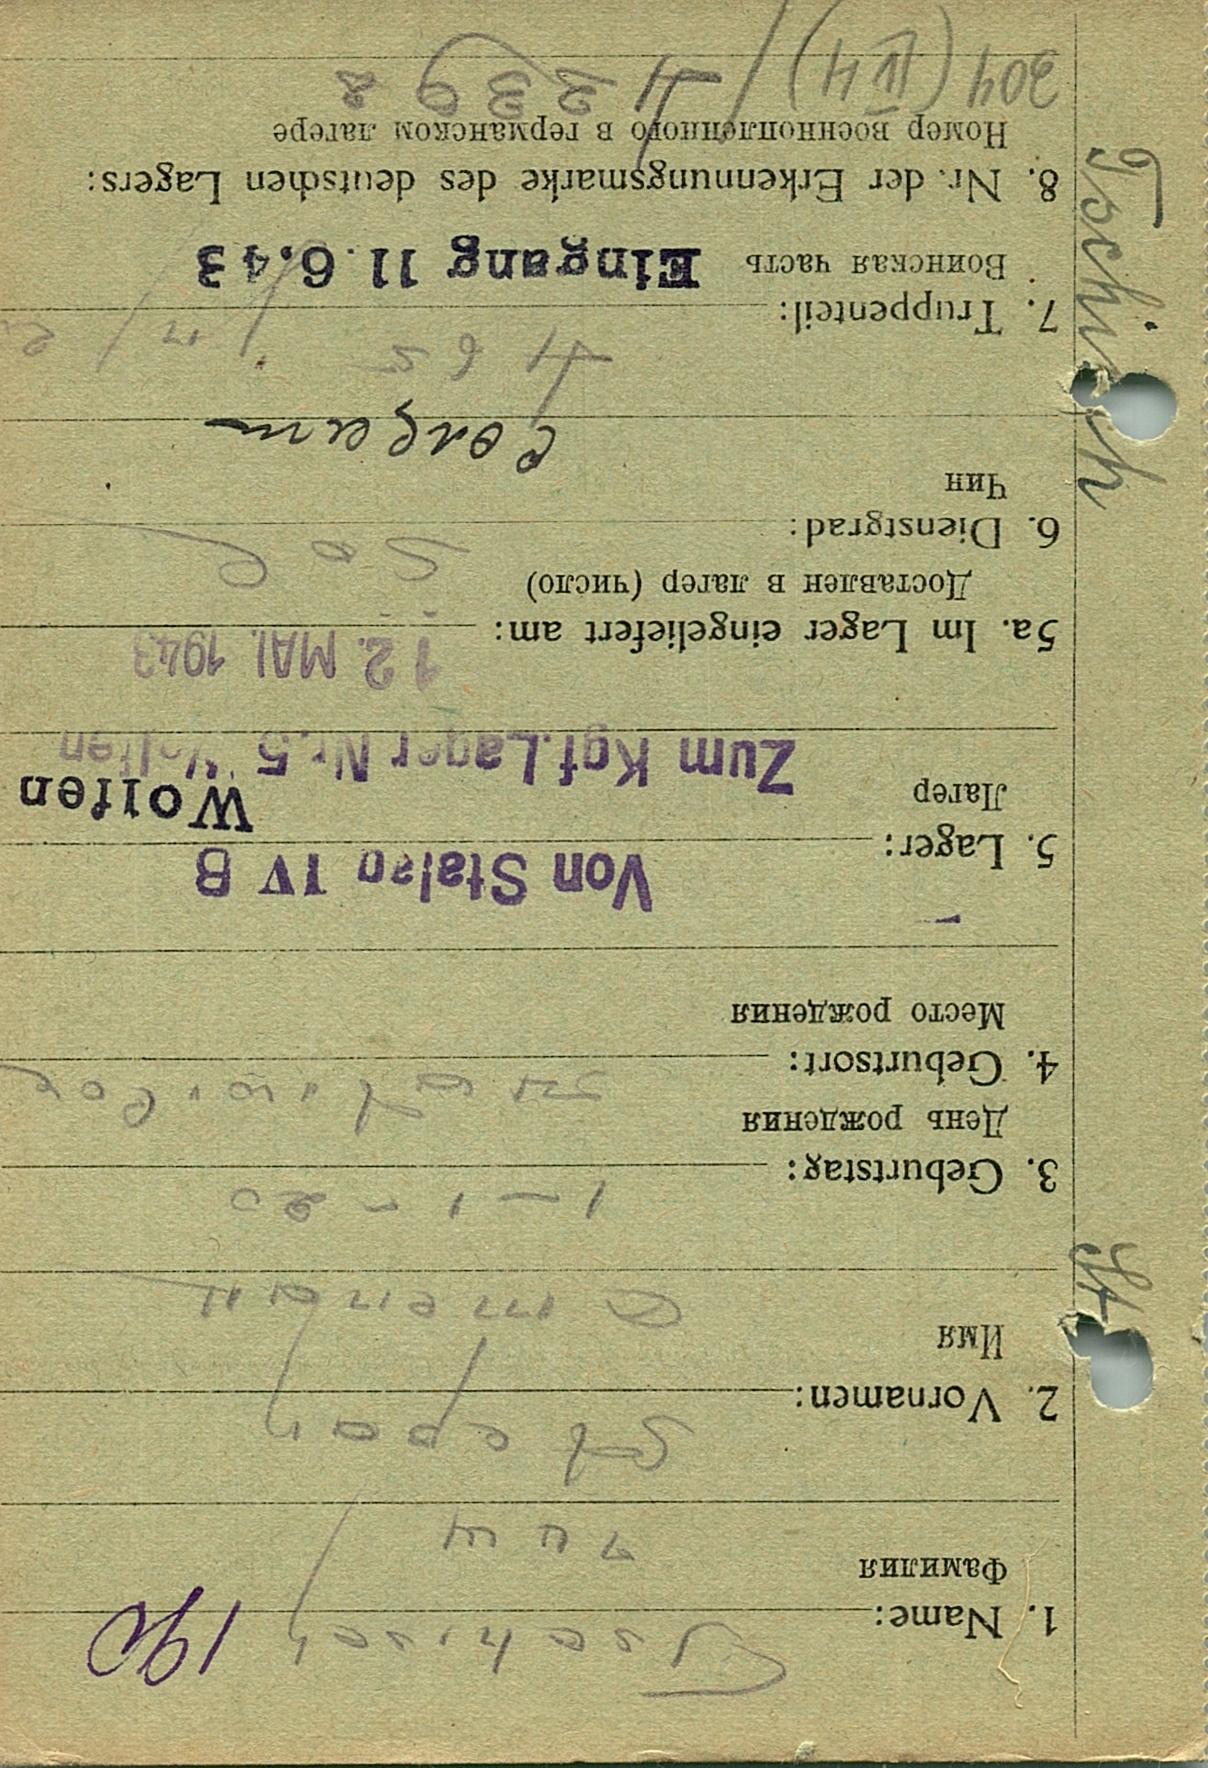 1. Name: Tschisch 190
Фамилия
Чиш
2. Vornamen: Stepan
Имя
3. Geburtstag: 1-1-20
День рождения
4. Geburtsort:
Место рождения
Von Stalag IV B
5. Lager: Wolfen
Лагер Zum Kgf. Lager Nr. 5 Wolfen
12. MAI 1943
5a. Im Lager eingeliefert am:
Доставлен в лагер (число)
6. Dienstgrad: Sol
Чин
Солдат
465
7. Truppenteil:
Воинская часть Eingang 11. 6. 43
8. Nr. der Erkennungsmarke des deutschen Lagers:
Номер военнопленного в германском лагере
304 (IV H) / 42398
Tschisch
St